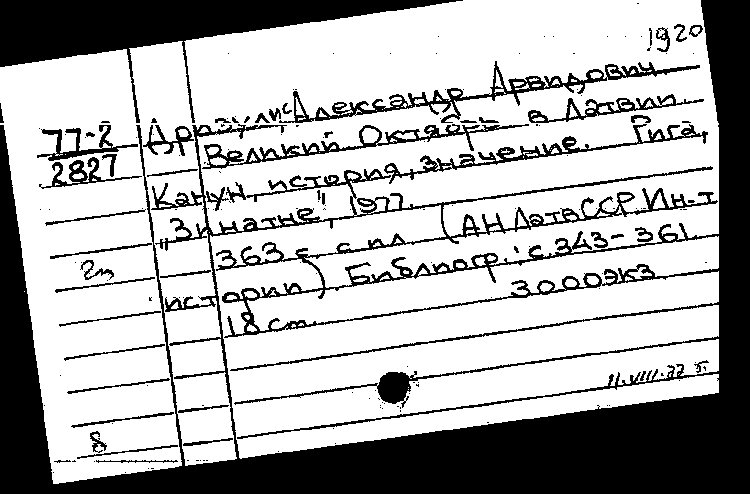 1920
77-2
2827
Дризулис Александр Арвидович
Великий Октябрь в Латвии.
Канун, история, значение. Рига,
„Зинатне", 1977.
363 с. с ил. (АН ЛатвССР. Ин-т
истории). Библиогр.: с. 343-361
18 cm. 3000экз
2m
11.VIII.77 г.
8